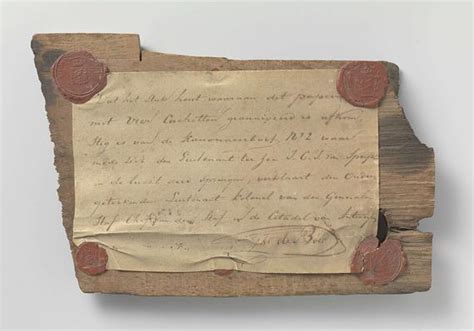 Dat het Stuk hout waaraan dit papier
met vier Cachetten geannexeerd is afkom
stig is van de Kanonneerboot No 2 waar
mede zich den Luitenant ter Zee J. C. J. van Speyk
in de lucht deed springen, verklaart de Onder
geteekende Luitenant Kolonel van den Generale
Staf Chef van den Staf in de Citadel van Antwerpen